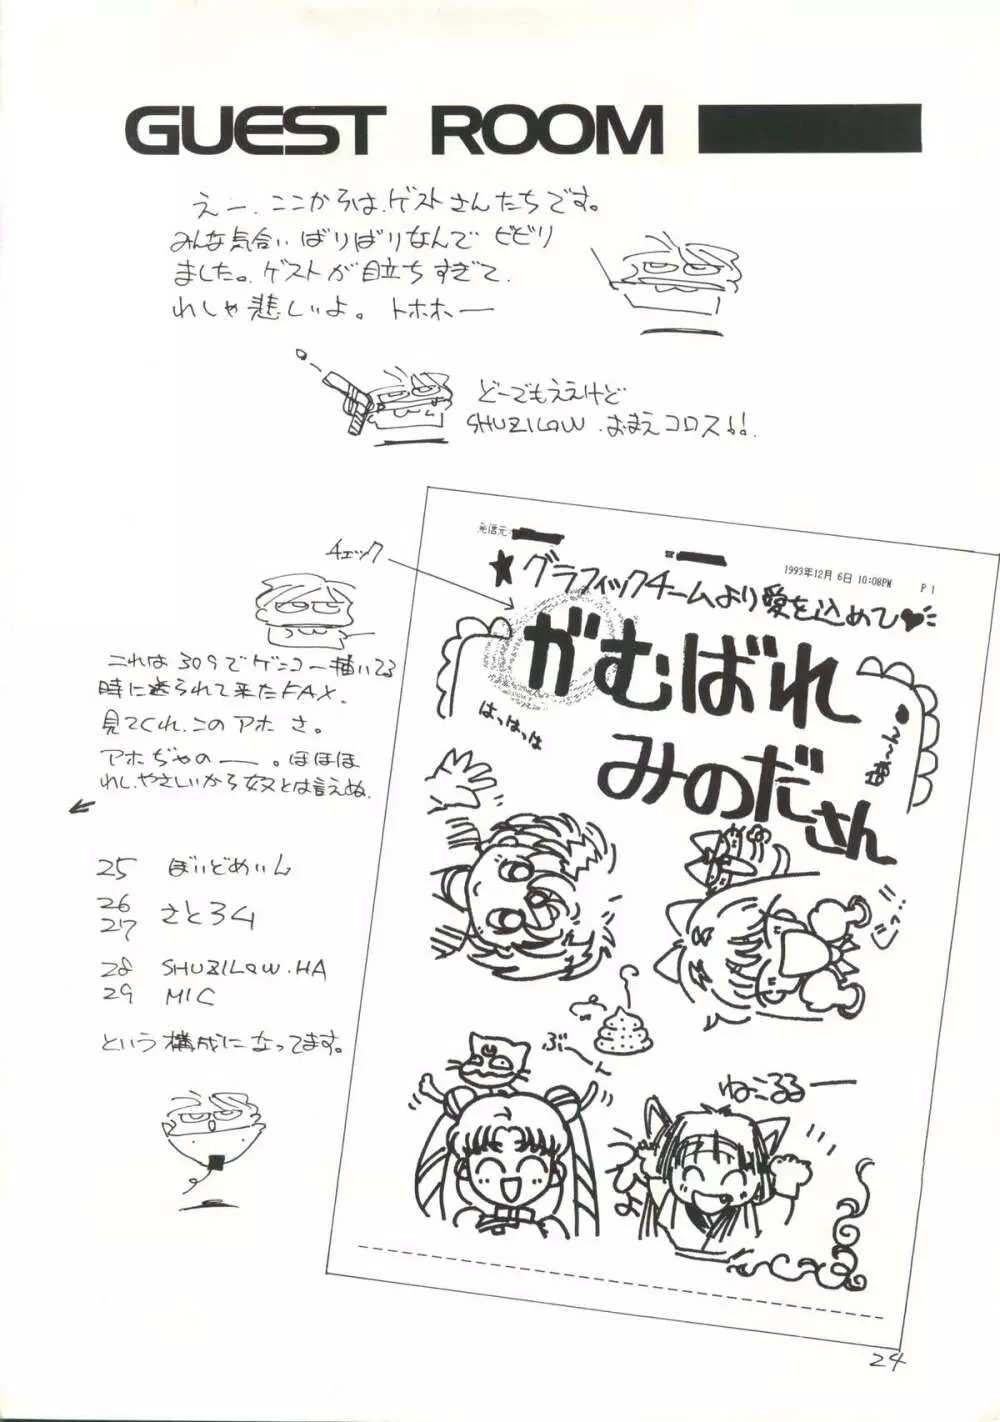 GUEST ROOM
えー、ここからは、ゲストさんたちです。
みんな気合いばりばりなんで ビビり
ました。ゲストが目立ちすぎて、
れしゃ悲しいよ。トホホー
どーでもええけど
SHUZILOW、おまえコロス!!
チェック
これは 309でゲンコー描いてる
時に送られて来たFAX.
見てくれ、このアホさ。
アホぢゃのー。ほほほ
れし、やさしいから 奴とは言えぬ.
25 ぼいどめいん
26
27 さとろ4
28 SHUZILOW.HA
29 MIC
という構成になってます。
発信元:
1993年12月 6日 10:08PM P 1
★グラフィックチームより愛を込めて♥
がむばれ
みのださん
はっはっは
あ〜ん
じっ…!
ぶ〜ん
ねこるるー
24